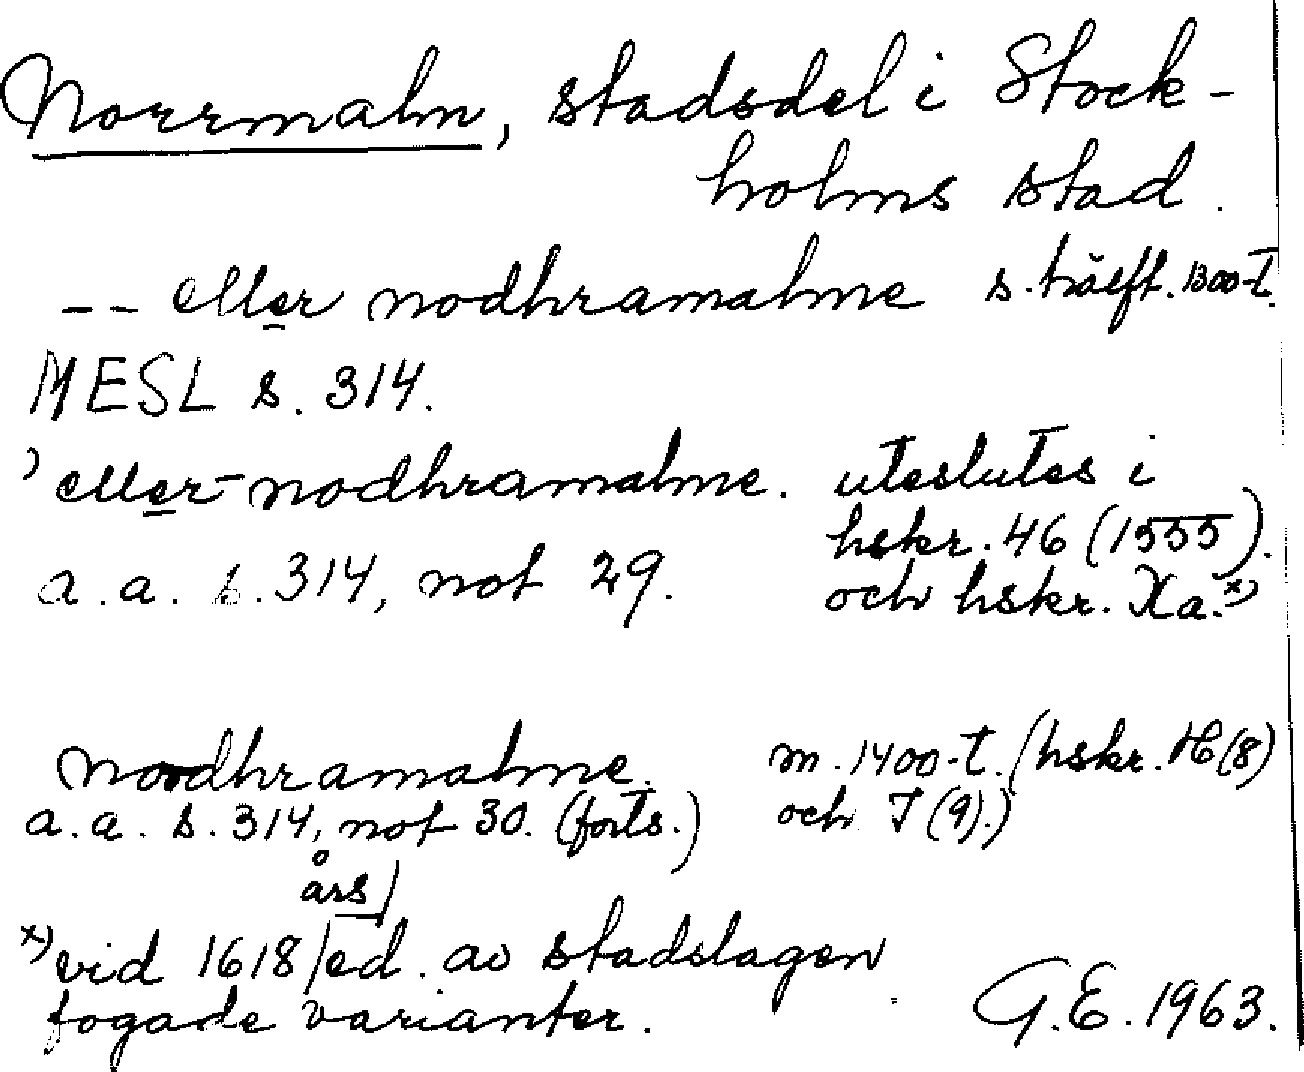 Norrmalm, stadsdel i Stock-
holms stad.
-- eller nodhramalme s. hälft. 1300-t.
MESL s. 314.
) eller nodhramalme. uteslutes i
hskr. 46 (1555).
a.a. s. 314, not 29. och hskr. Xa.x)
nordhramalme. m. 1400-t. (hskr. H(8)
a.a. s. 314, not 30. (forts.) och I (9).)
års
x) vid 1618/ed. av stadslagen
fogade varianter. G.E. 1963.